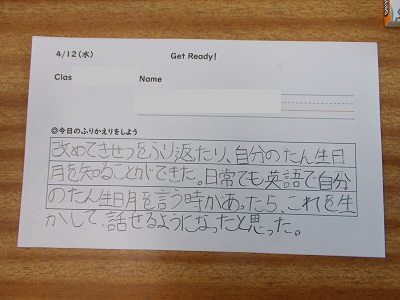 4/12(水)
Get Ready!
Clas
Name
◎今日のふりかえりをしよう
改めてきせつをふり返ったり、自分のたん生日
月を知ることができた。日常でも英語で自分
のたん生日月を言う時があったら、これを生
かして、話せるようになったと思った。